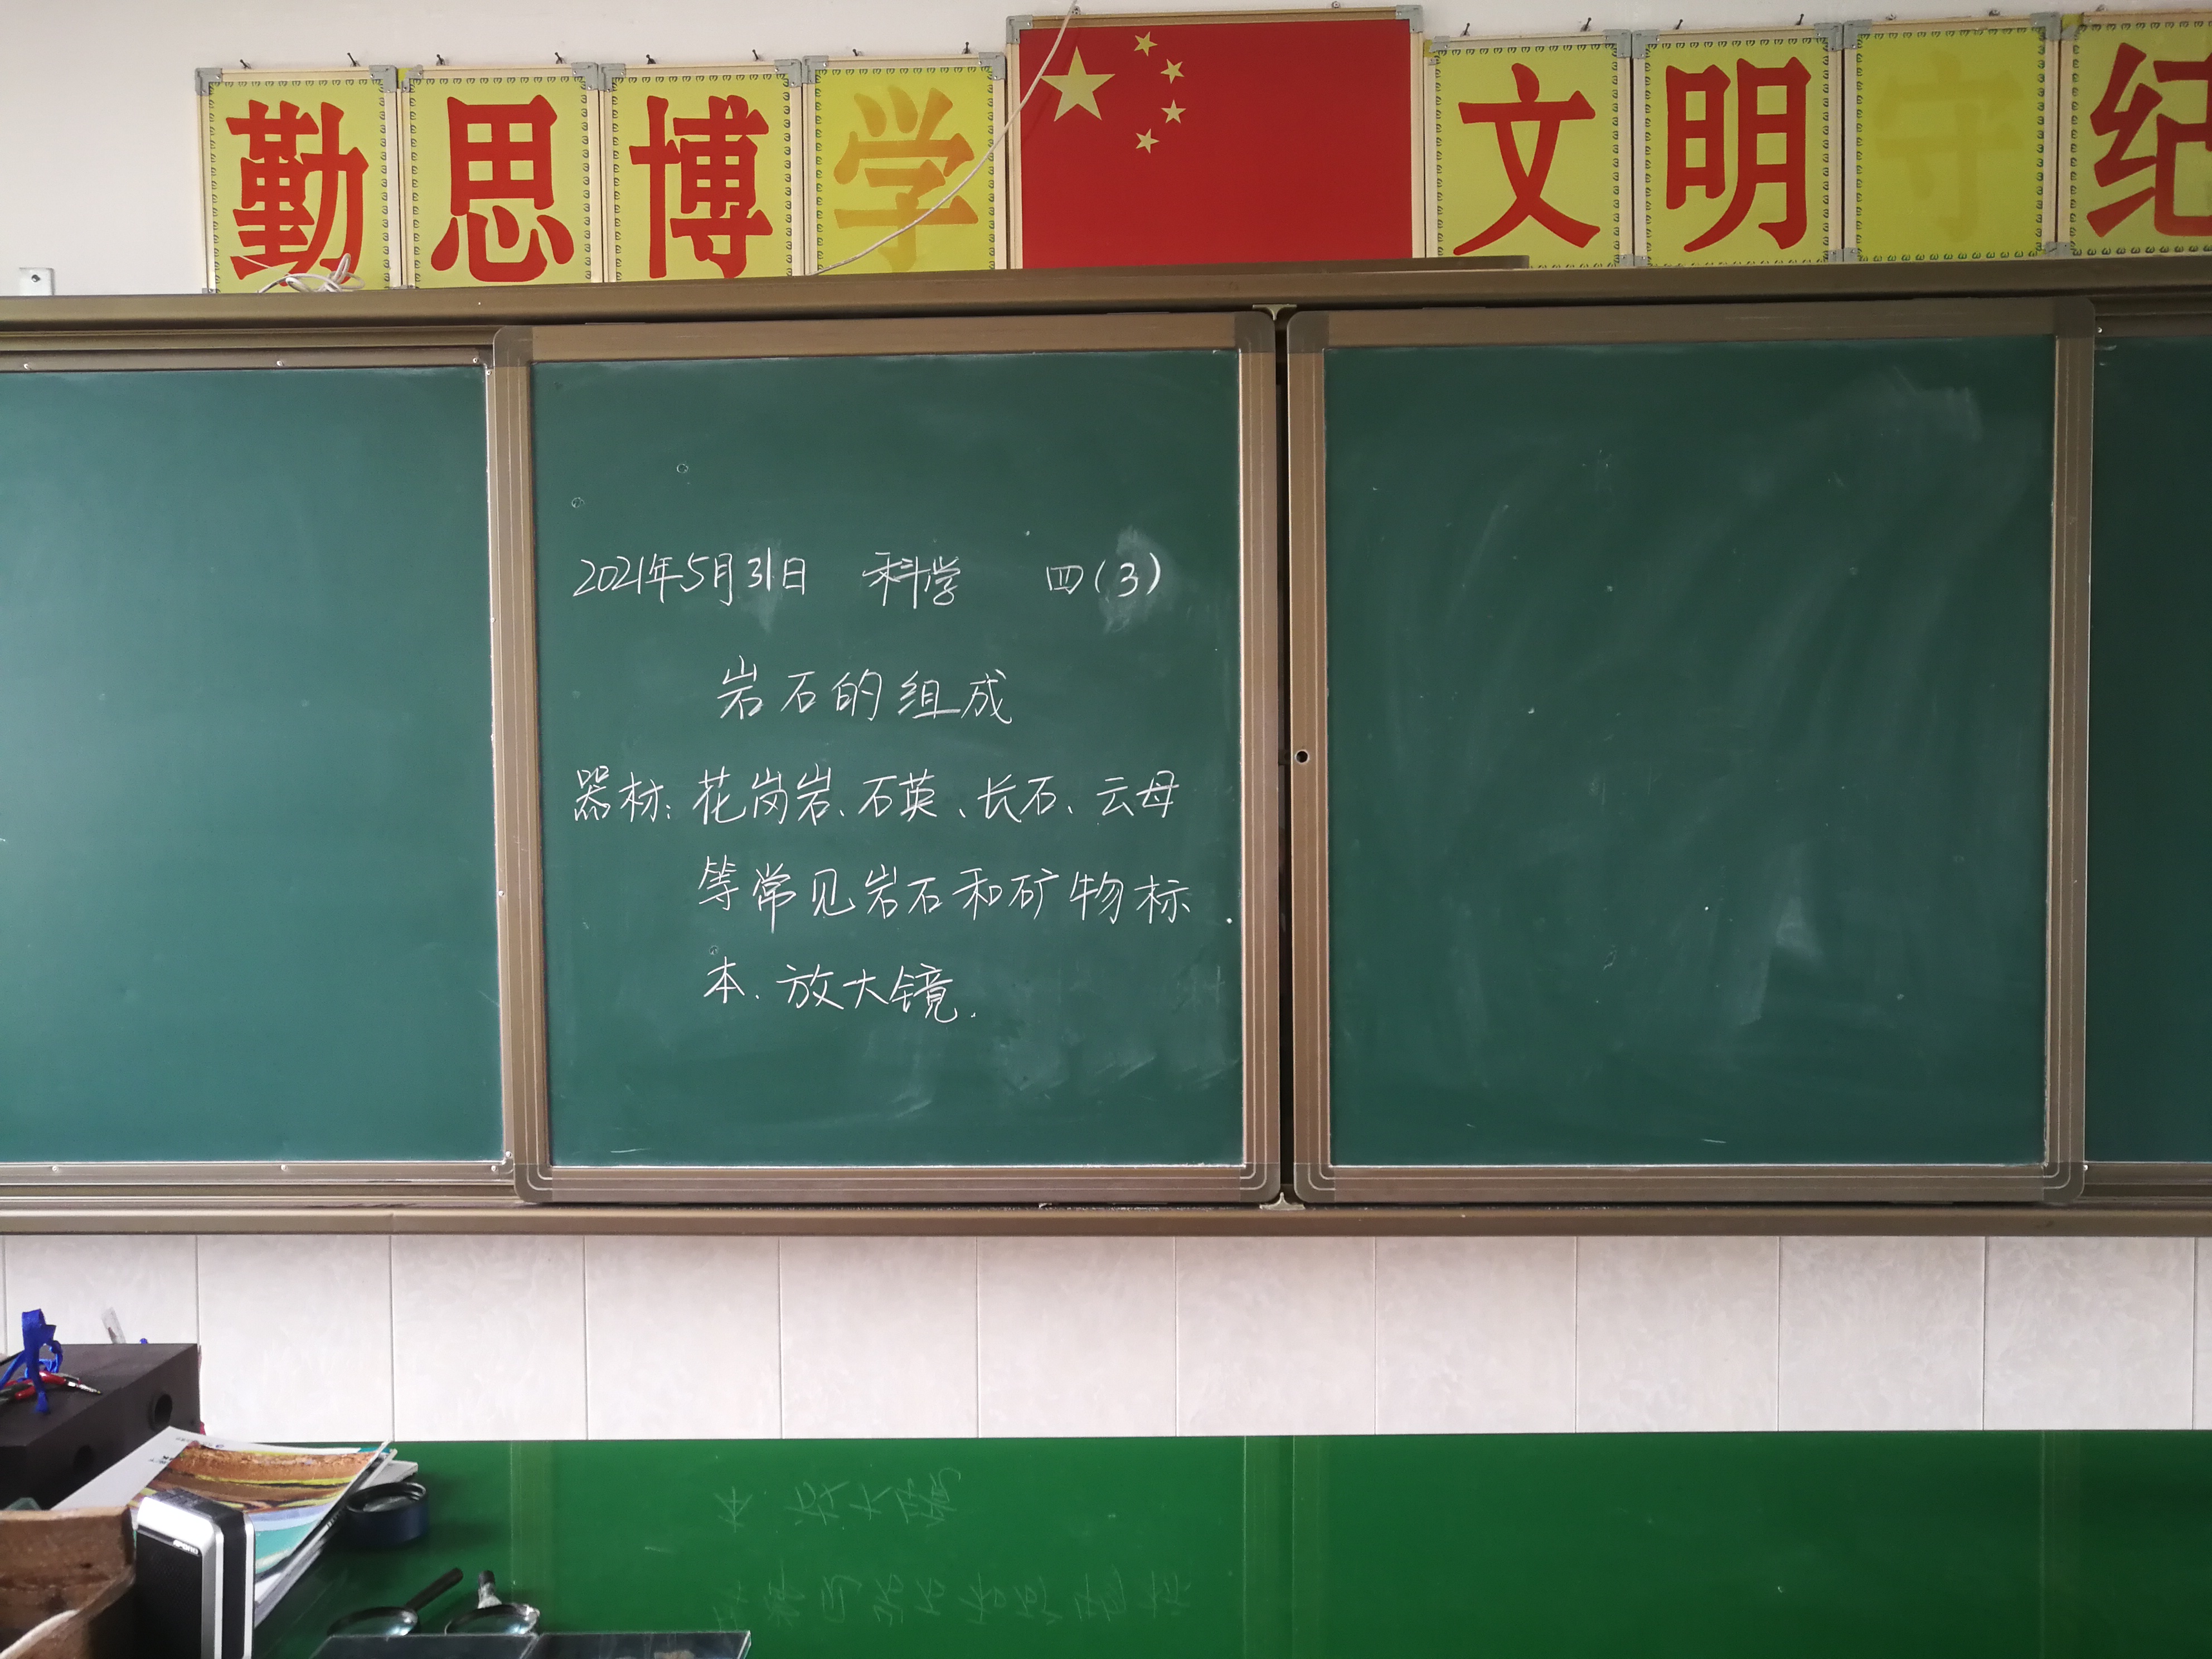 勤思博学 文明守纪
2021年5月31日 科学 四(3)
岩石的组成
器材:花岗岩、石英、长石、云母
等常见岩石和矿物标
本.放大镜.